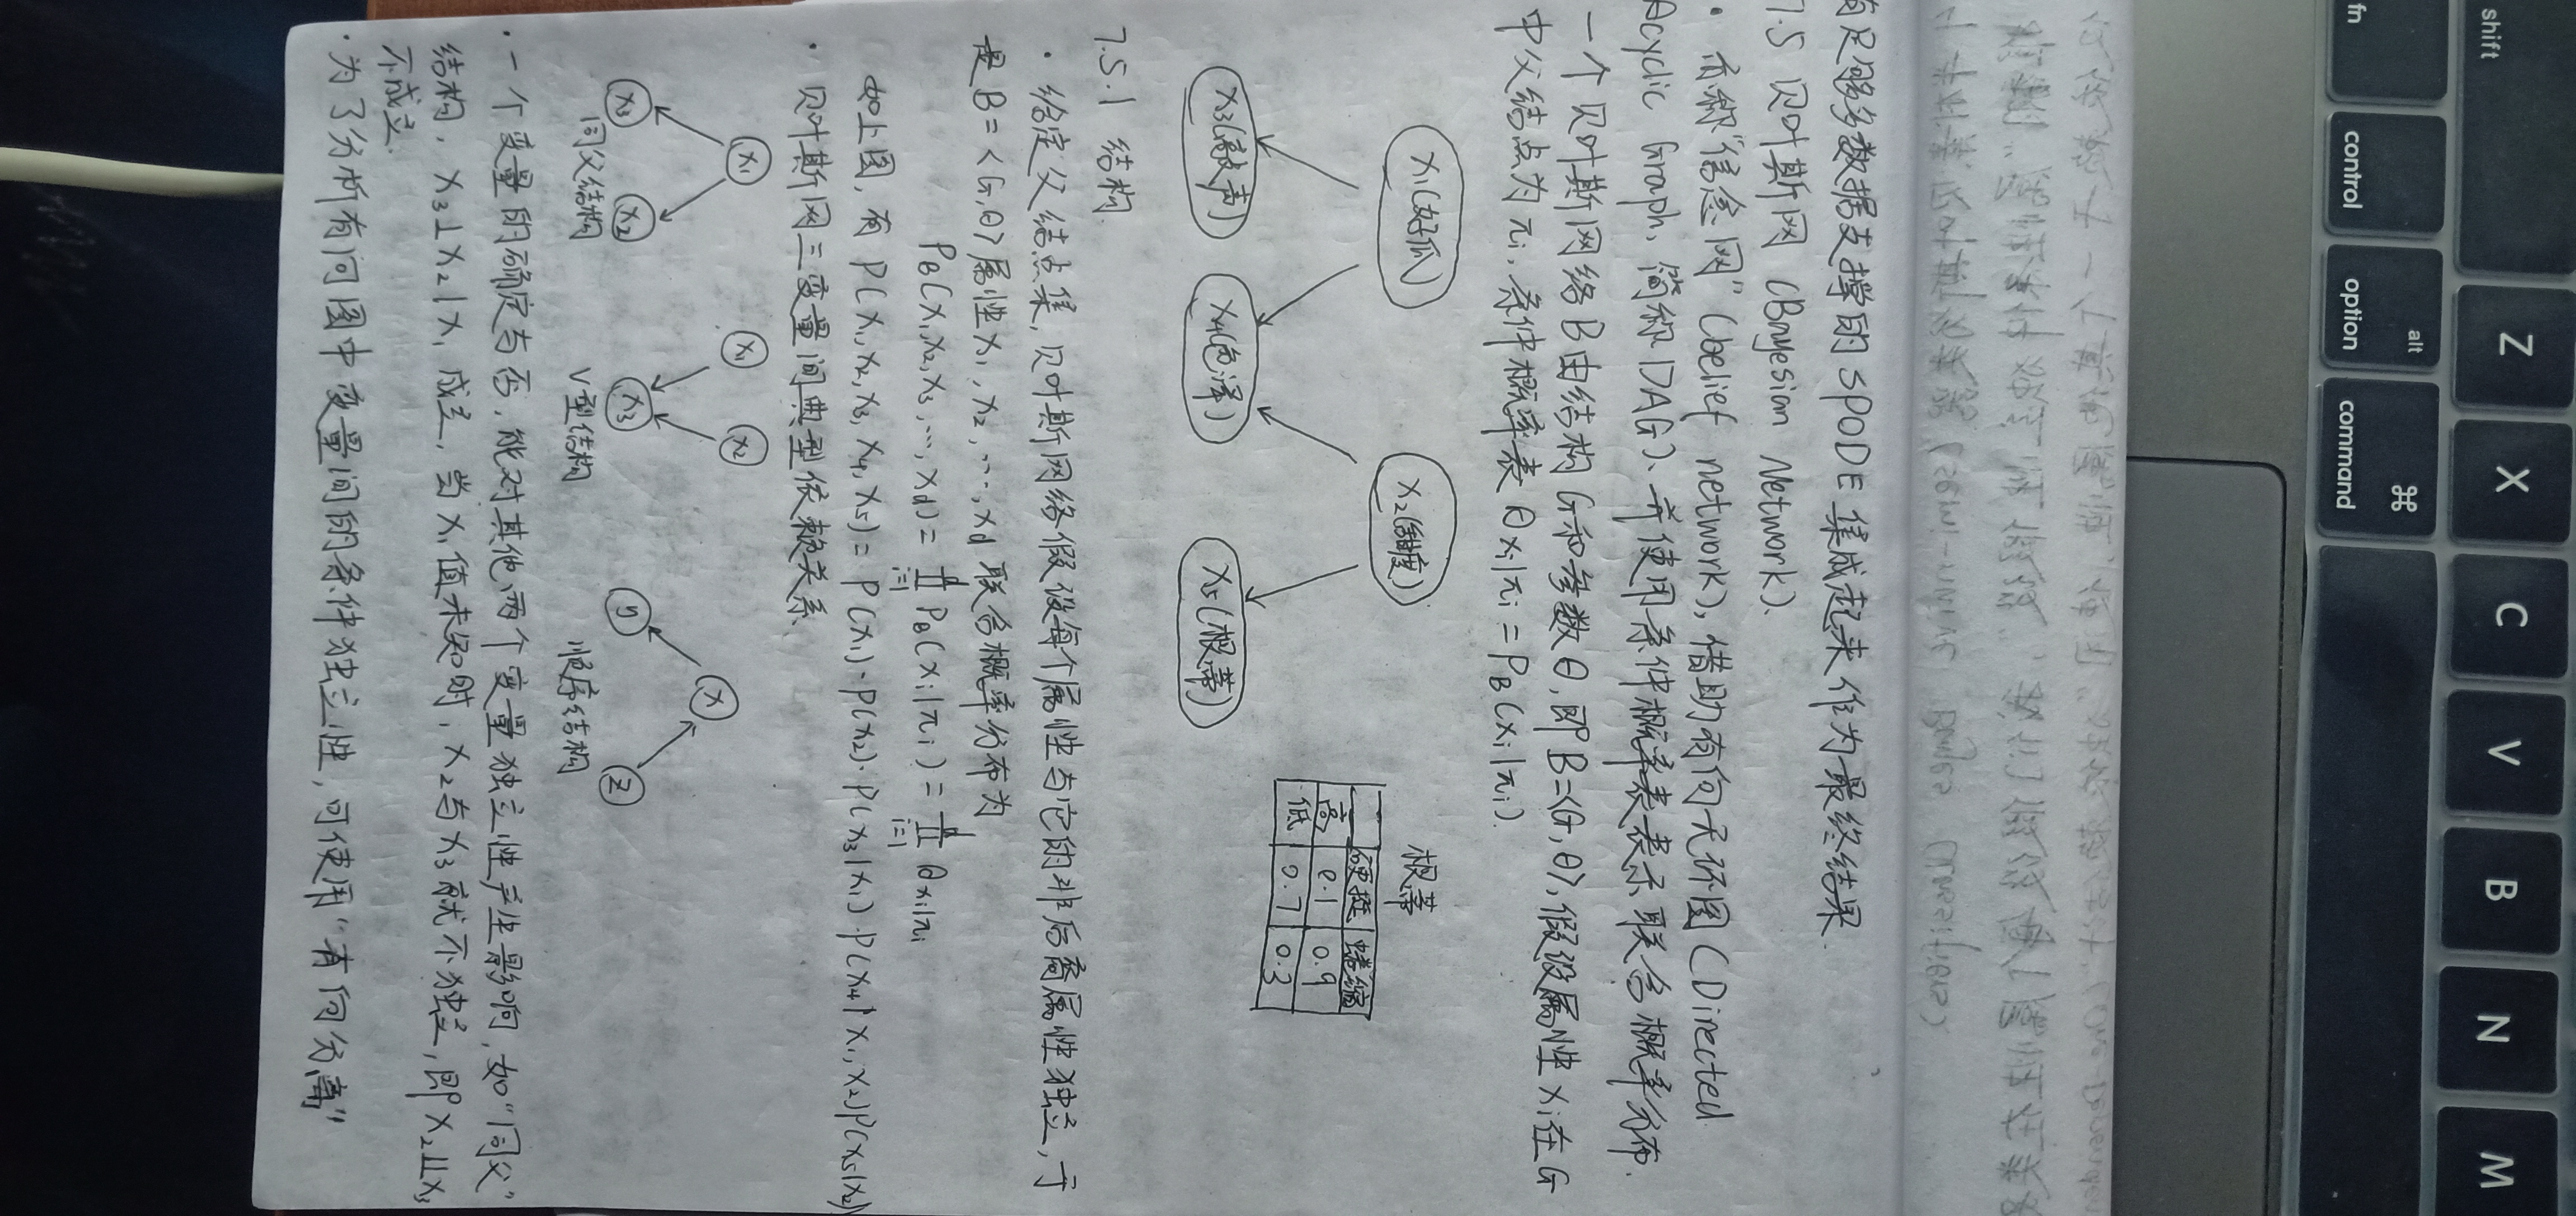 有足够多数据支撑的SPODE集成起来作为最终结果.
7.5 贝叶斯网 (Bayesian Network).
· 亦称"信念网" (belief network), 借助有向无环图 (Directed
Acyclic Graph, 简称DAG)、并使用条件概率表表示联合概率分布.
一个贝叶斯网络B由结构G和参数θ, 即B=<G,θ>, 假设属性xi在G
中父结点为πi, 条件概率表 θxi|πi = PB(xi|πi).
x1(好瓜)
x2(甜度)
x3(敲声)
x4(色泽)
x5(根蒂)
根蒂
硬挺 蜷缩
高 0.1 0.9
低 0.7 0.3
7.5.1 结构
· 给定父结点集, 贝叶斯网络假设每个属性与它的非后裔属性独立, 于
是B=<G,θ>属性x1,x2,…,xd联合概率分布为
PB(x1,x2,x3,…,xd)=∏i=1d PB(xi|πi)=∏i=1d θxi|πi
如上图, 有 P(x1,x2,x3,x4,x5)=P(x1)·P(x2)·P(x3|x1)·P(x4|x1,x2)P(x5|x2)
· 贝叶斯网三变量间典型依赖关系.
x1 x3 x2
同父结构
x1 x2 x3
V型结构
x y z
顺序结构
· 一个变量的确定与否, 能对其他两个变量独立性产生影响, 如"同父"
结构, x3⊥x2|x1 成立, 当x1值未知时, x2与x3就不独立, 即x2⫫x3
不成立.
· 为了分析有向图中变量间的条件独立性, 可使用"有向分离"
shift
Z X C V B N M
fn control option alt command ⌘